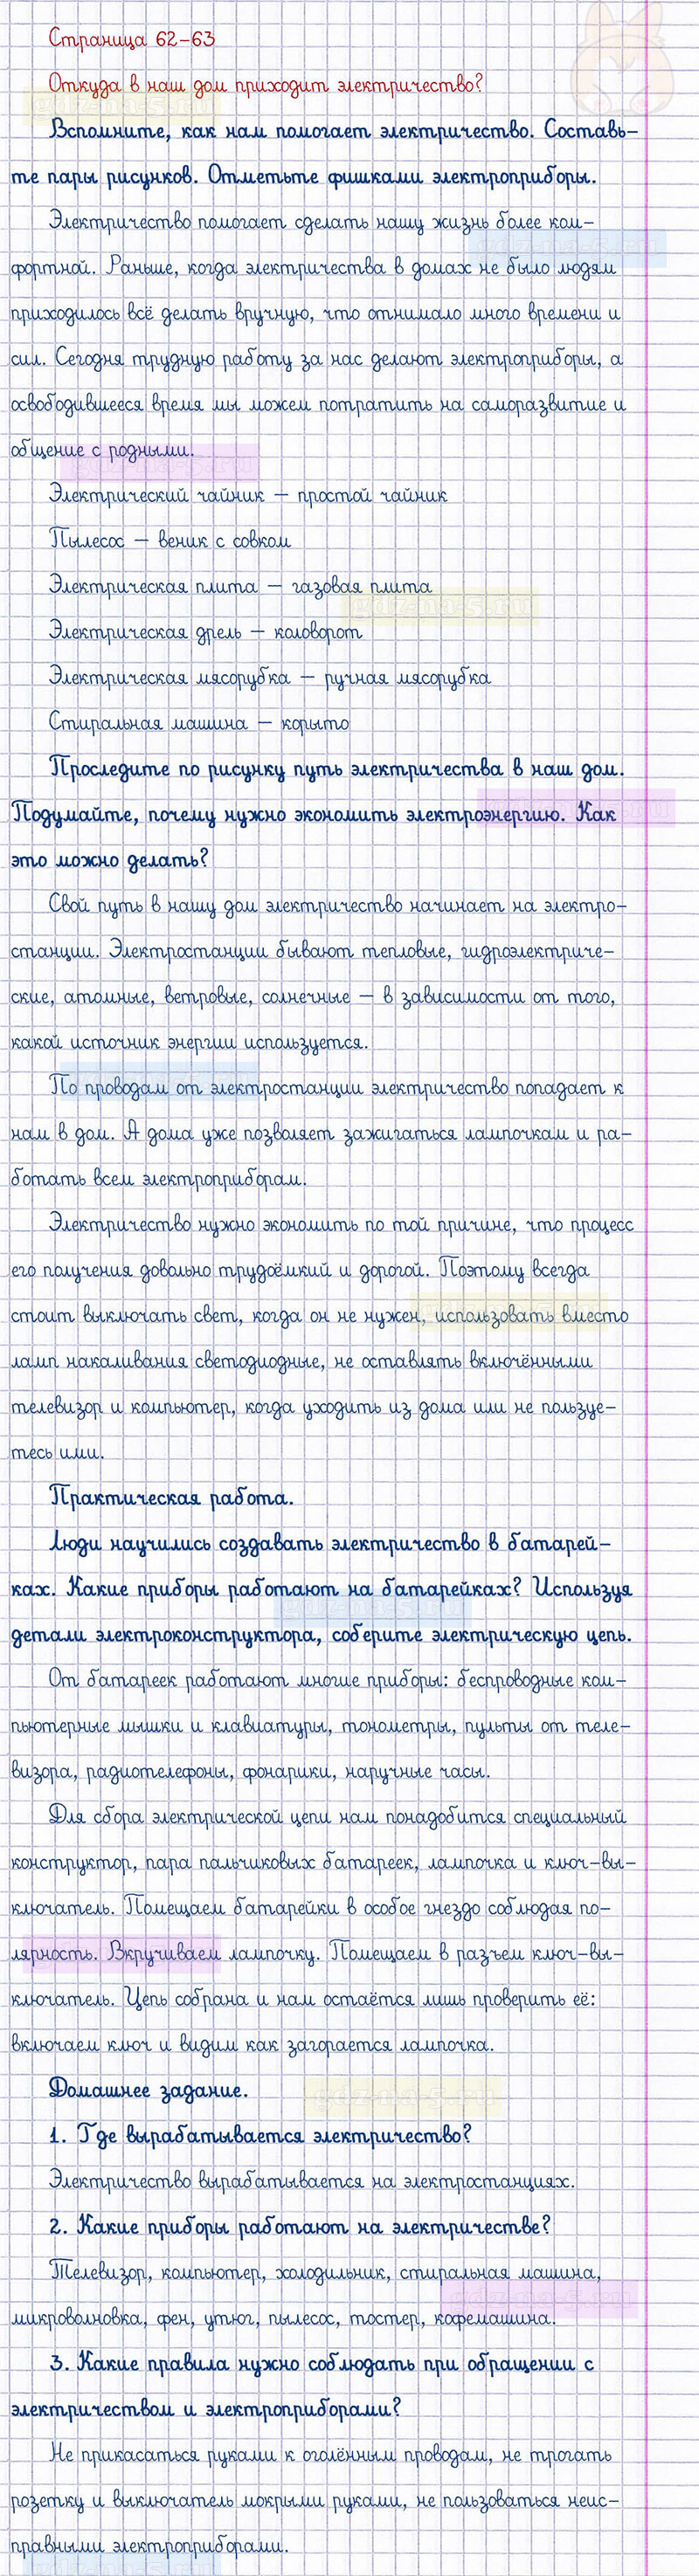 Страница 62-63
Откуда в наш дом приходит электричество?
Вспомните, как нам помогает электричество. Составь-
те пары рисунков. Отметьте фишками электроприборы.
Электричество помогает сделать нашу жизнь более ком-
фортной. Раньше, когда электричества в домах не было людям
приходилось всё делать вручную, что отнимало много времени и
сил. Сегодня трудную работу за нас делают электроприборы, а
освободившееся время мы можем потратить на саморазвитие и
общение с родными.
Электрический чайник – простой чайник
Пылесос – веник с совком
Электрическая плита – газовая плита
gdz-na-5.ru
Электрическая дрель – коловорот
Электрическая мясорубка – ручная мясорубка
Стиральная машина – корыто
Проследите по рисунку путь электричества в наш дом.
Подумайте, почему нужно экономить электроэнергию. Как
это можно делать?
Свой путь в нашу дом электричество начинает на электро-
станции. Электростанции бывают тепловые, гидроэлектриче-
ские, атомные, ветровые, солнечные – в зависимости от того,
какой источник энергии используется.
По проводам от электростанции электричество попадает к
нам в дом. А дома уже позволяет зажигаться лампочкам и ра-
ботать всем электроприборам.
Электричество нужно экономить по той причине, что процесс
его получения довольно трудоёмкий и дорогой. Поэтому всегда
стоит выключать свет, когда он не нужен, использовать вместо
ламп накаливания светодиодные, не оставлять включёнными
телевизор и компьютер, когда уходить из дома или не пользуе-
тесь ими.
Практическая работа.
Люди научились создавать электричество в батарей-
ках. Какие приборы работают на батарейках? Используя
детали электроконструктора, соберите электрическую цепь.
От батареек работают многие приборы: беспроводные ком-
пьютерные мышки и клавиатуры, тонометры, пульты от теле-
визора, радиотелефоны, фонарики, наручные часы.
Для сбора электрической цепи нам понадобится специальный
конструктор, пара пальчиковых батареек, лампочка и ключ-вы-
ключатель. Помещаем батарейки в особое гнездо соблюдая по-
лярность. Вкручиваем лампочку. Помещаем в разъем ключ-вы-
ключатель. Цепь собрана и нам остаётся лишь проверить её:
включаем ключ и видим как загорается лампочка.
Домашнее задание.
gdz-na-5.ru
1. Где вырабатывается электричество?
Электричество вырабатывается на электростанциях.
2. Какие приборы работают на электричестве?
Телевизор, компьютер, холодильник, стиральная машина,
gdz-na-5.ru
микроволновка, фен, утюг, пылесос, тостер, кофемашина.
3. Какие правила нужно соблюдать при обращении с
электричеством и электроприборами?
Не прикасаться руками к оголённым проводам, не трогать
розетку и выключатель мокрыми руками, не пользоваться неис-
правными электроприборами.